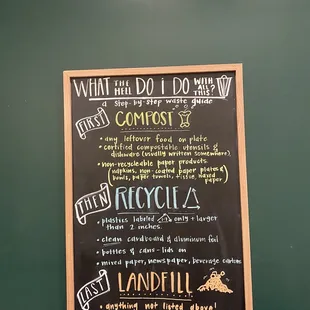 WHAT THE HELL DO I DO WITH ALL THIS?
a step-by-step waste guide
FIRST COMPOST
• any leftover food on plate
• certified compostable utensils &
dishware (usually written somewhere)
• non-recyclable paper products
(napkins, non-coated paper plates &
bowls, paper towels, tissue, waxed
paper)
THEN RECYCLE
• plastics labeled only + larger
than 2 inches.
• clean cardboard & aluminum foil
• bottles & cans - lids on
• mixed paper, newspaper, beverage cartons
LAST LANDFILL
• anything not listed above!